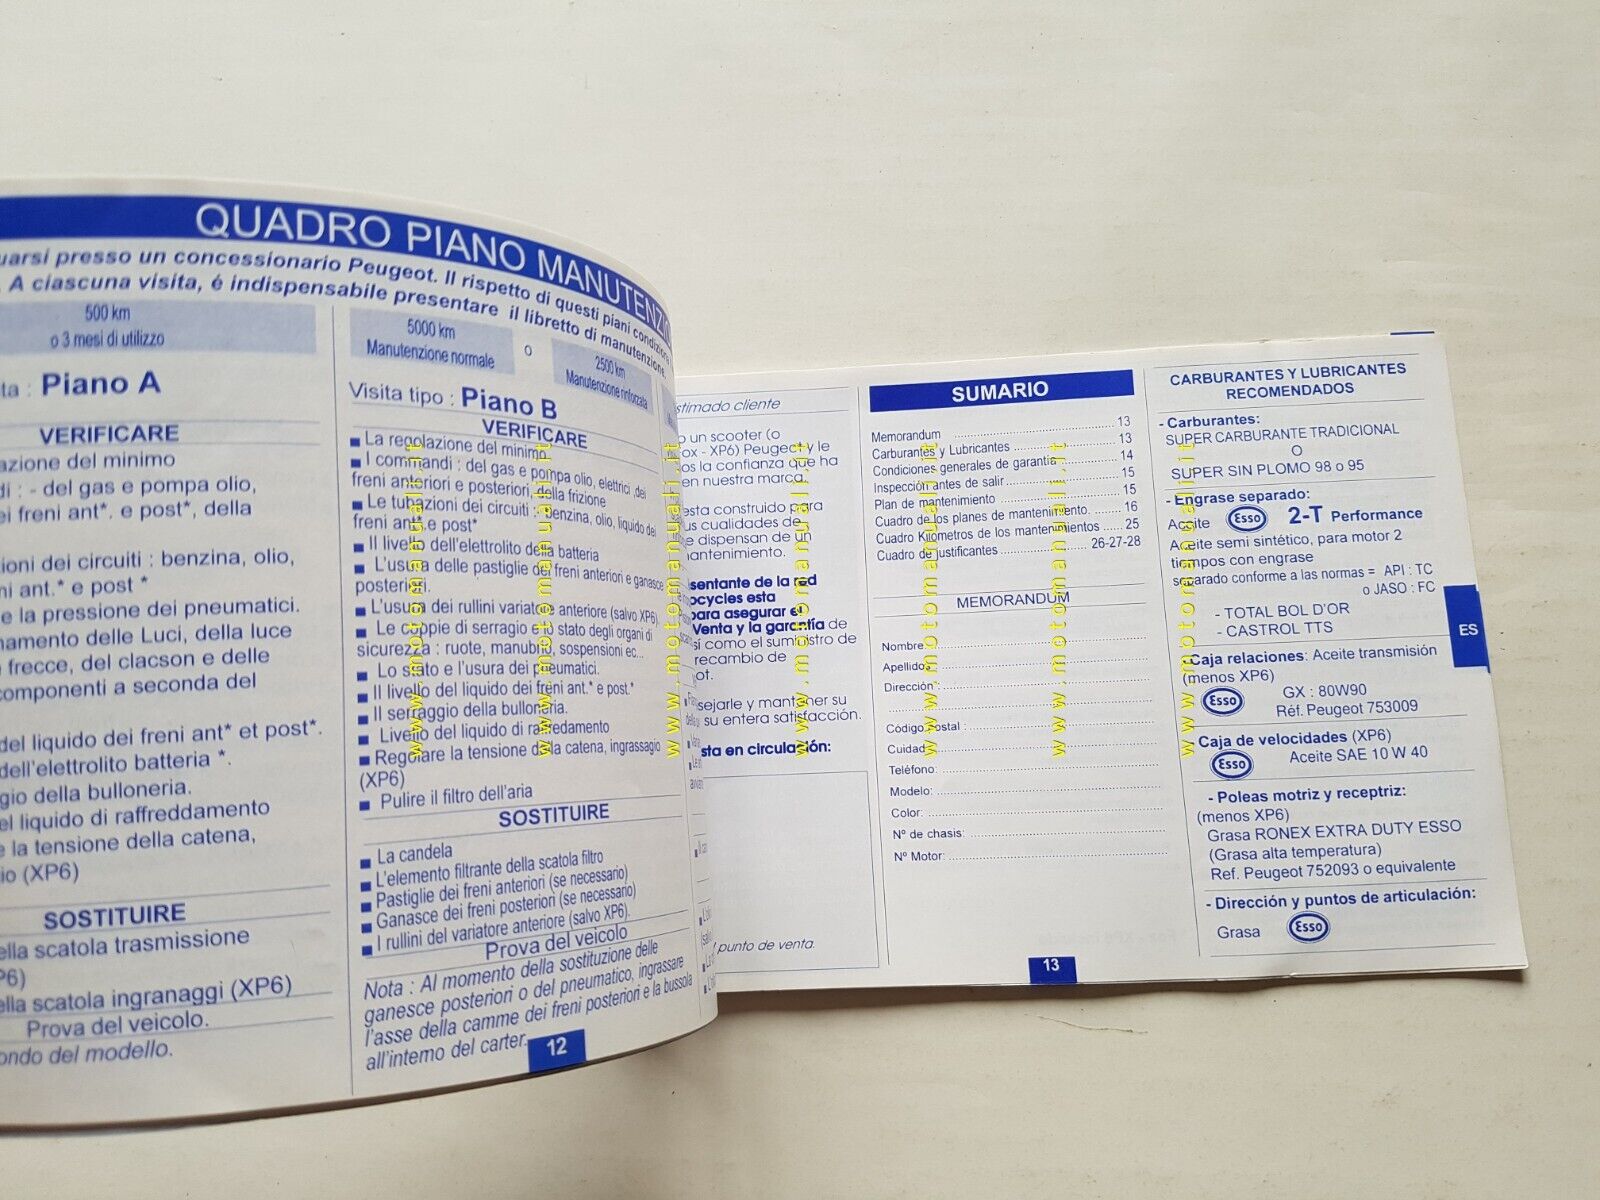 QUADRO PIANO MANUTENZIO
uarsi presso un concessionario Peugeot. Il rispetto di questi piani condiziona
A ciascuna visita, é indispensabile presentare il libretto di manutenzione.
500 km
o 3 mesi di utilizzo
ta : Piano A
VERIFICARE
azione del minimo
di : - del gas e pompa olio,
ei freni ant*. e post*, della
ioni dei circuiti : benzina, olio,
ni ant.* e post *
e la pressione dei pneumatici.
namento delle Luci, della luce
frecce, del clacson e delle
componenti a seconda del
del liquido dei freni ant* et post*.
dell'elettrolito batteria *.
gio della bulloneria.
el liquido di raffreddamento
e la tensione della catena,
io (XP6)
SOSTITUIRE
ella scatola trasmissione
P6)
ella scatola ingranaggi (XP6)
Prova del veicolo.
ondo del modello.
5000 km
Manutenzione normale
o
2500 km
Manutenzione rinforzata
Visita tipo : Piano B
VERIFICARE
■ La regolazione del minimo
■ I commandi : del gas e pompa olio, elettrici ,dei
freni anteriori e posteriori, della frizione
■ Le tubazioni dei circuiti : benzina, olio, liquido dei
freni ant*.e post*
■ Il livello dell'elettrolito della batteria
■ L'usura delle pastiglie dei freni anteriori e ganasce
posteriori.
■ L'usura dei rullini variatore anteriore (salvo XP6).
■ Le coppie di serragio e lo stato degli organi di
sicurezza : ruote, manubrio, sospensioni ec...
■ Lo stato e l'usura dei pneumatici.
■ Il livello del liquido dei freni ant.* e post.*
■ Il serraggio della bulloneria.
■ Livello del liquido di raffredamento
■ Regolare la tensione della catena, ingrassagio
(XP6)
■ Pulire il filtro dell'aria
SOSTITUIRE
■ La candela
■ L'elemento filtrante della scatola filtro
■ Pastiglie dei freni anteriori (se necessario)
■ Ganasce dei freni posteriori (se necessario)
■ I rullini del variatore anteriore (salvo XP6).
Prova del veicolo
Nota : Al momento della sostituzione delle
ganesce posteriori o del pneumatico, ingrassare
l'asse della camme dei freni posteriori e la bussola
all'interno del carter.
12
stimado cliente
o un scooter (o
ox - XP6) Peugeot y le
os la confianza que ha
en nuestra marca.
esta construido para
us cualidades de
e dispensan de un
antenimiento.
sentante de la red
ocycles esta
para asegurar el
Venta y la garantía de
sí como el suministro de
recambio de
ot.
sejarle y mantener su
su entera satisfacción.
sta en circulación:
punto de venta.
SUMARIO
Memorandum ........ 13
Carburantes y Lubricantes ........ 13
Condiciones generales de garantía ........ 14
Inspección antes de salir ........ 15
Plan de mantenimiento ........ 15
Cuadro de los planes de mantenimiento. ........ 16
Cuadro Kilómetros de los mantenimientos ...... 25
Cuadro de justificantes ........ 26-27-28
MEMORANDUM
Nombre:
Apellidos
Dirección":
Código Postal :
Cuidad
Teléfono:
Modelo:
Color:
Nº de chasis:
Nº Motor:
13
CARBURANTES Y LUBRICANTES
RECOMENDADOS
- Carburantes:
SUPER CARBURANTE TRADICIONAL
O
SUPER SIN PLOMO 98 o 95
- Engrase separado:
Aceite Esso 2-T Performance
Aceite semi sintético, para motor 2
tiempos con engrase
separado conforme a las normas = API : TC
o JASO : FC
- TOTAL BOL D'OR
- CASTROL TTS
- Caja relaciones: Aceite transmisión
(menos XP6)
Esso GX : 80W90
Réf. Peugeot 753009
Caja de velocidades (XP6)
Esso Aceite SAE 10 W 40
- Poleas motriz y receptriz:
(menos XP6)
Grasa RONEX EXTRA DUTY ESSO
(Grasa alta temperatura)
Ref. Peugeot 752093 o equivalente
- Dirección y puntos de articulación:
Grasa Esso
ES
www.motomanuali.it
www.motomanuali.it
www.motomanuali.it
www.motomanuali.it
www.motomanuali.it
www.motomanuali.it
www.motomanuali.it